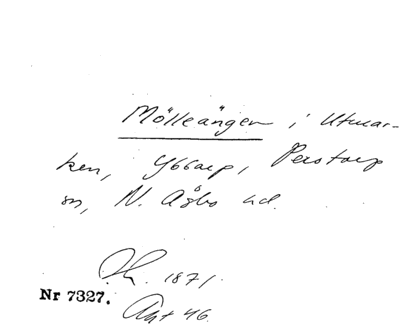 Mölleängen i Utmar-
ken, Ybbarp, Perstorp
sn, N. Åsbo hd.
Lh. 1871.
Nr 7327.
Akt 46.